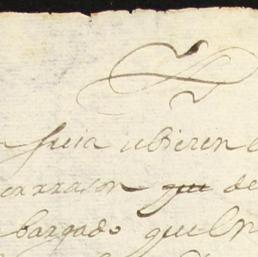 suia ubieren
en rrason que de
bargado que en